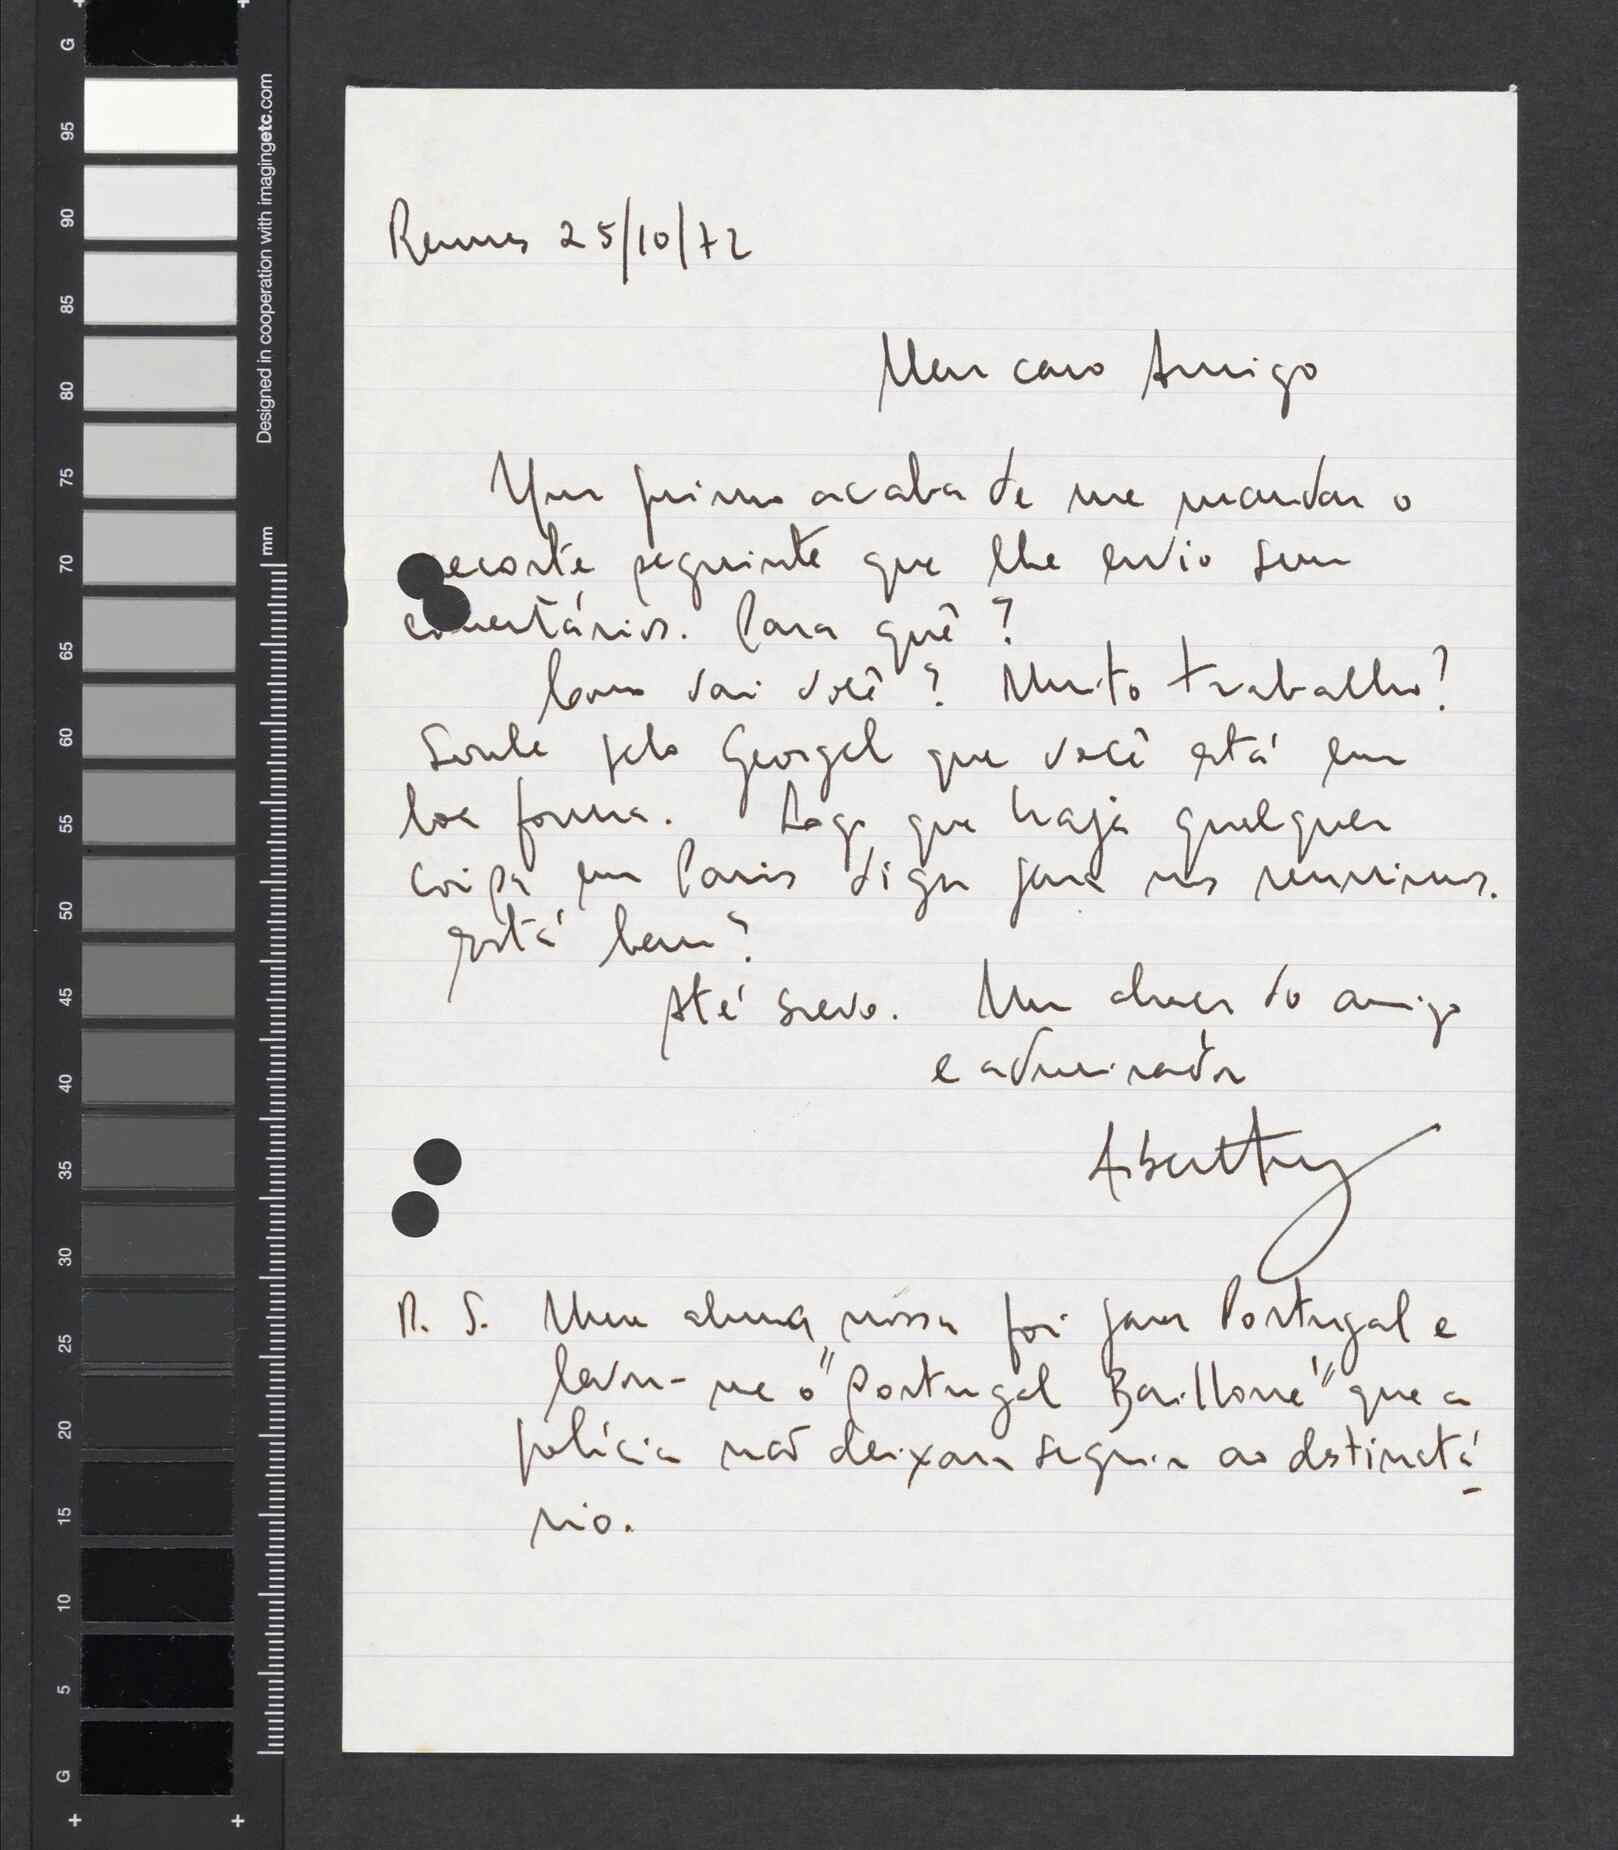 G
95
90
85
80
75
70
65
60
55
50
45
40
35
30
25
20
15
10
5
G
Designed in cooperation with imagingetc.com
mm
Rennes 25/10/72
Meu caro Amigo
Um primo acaba de me mandar o
recorte seguinte que lhe envio sem
comentários. Para quê?
Como vai você? Muito trabalho?
Soube pelo Georgel que você está em
boa forma. Logo que haja qualquer
coisa em Paris diga para nos reunirmos.
Está bem?
Até breve. Um abraço do amigo
e admirador
P. S. Uma aluna nossa foi para Portugal e
levou-me o "Portugal Baillonné" que a
polícia não deixara seguir ao destinatá-
rio.